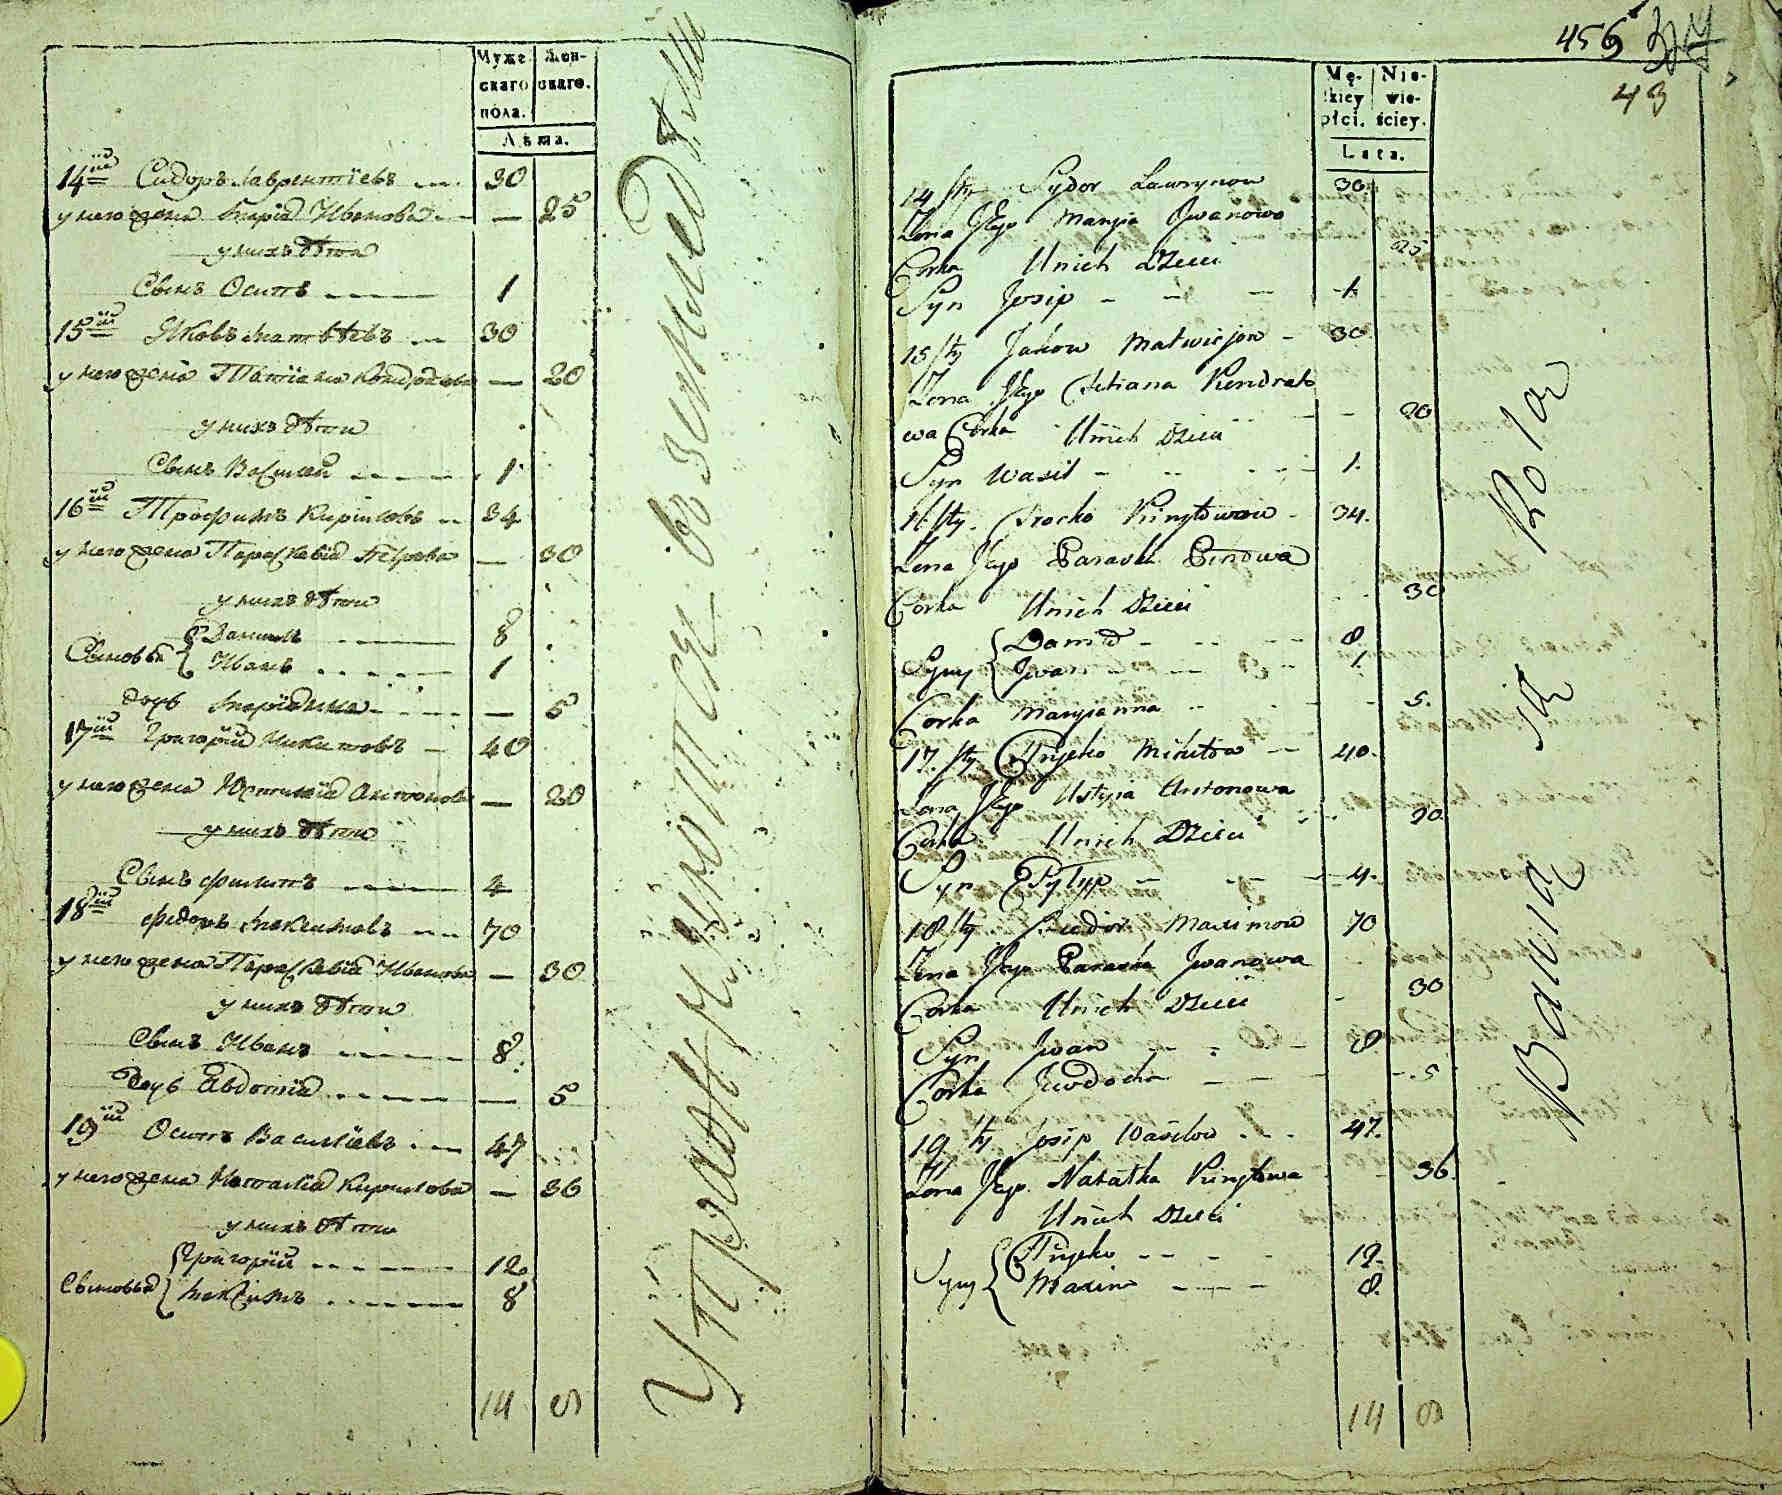 Муже-
скаго
пола.
Жен-
скаго.
Лѣта.
14ій Сидоръ Лаврентіевъ 30
у него жена Марія Иванова — 25
у нихъ дѣти
Сынъ Осипъ 1
15ій Яковъ Матвѣевъ 30
у него жена Татіана Кондратова — 20
у нихъ дѣти
Сынъ Василей 1
16ій Трофимъ Кириловъ 34
у него жена Параскевія Петрова — 30
у нихъ дѣти
Сыновья { Данилъ 8
Иванъ 1
дочь Маріанна — 5
17ій Григорій Никитовъ — 40
у него жена Юстинія Антонова — 20
у нихъ дѣти
Сынъ Филипъ 4
18ій Федоръ Максимовъ 70
у него жена Параскевія Иванова — 30
у нихъ дѣти
Сынъ Иванъ 8
дочь Евдотія — 5
19ій Осипъ Василіевъ 47
у него жена Наталія Кирилова — 36
у нихъ дѣти
Сыновья { Григорій 12
Максимъ 8
14 9
456
43
Mę-
skiey
płci.
Nie-
wie-
ściey.
Lata.
14 sty Sydor Lawrynow 30
Zona Jego Maryia Jwanowa
Corka Unich Dzieci 25
Syn Josip 1
15 sty Jakow Matwiejow 30
Zona Jego Tetiana Kondrato
wa Corka Unich Dzieci 20
Syn Wasil 1.
16 sty. Trocko Kiryłowow 34.
Zona Jego Paraska Petrowa
Corka Unich Dzieci 30
Syny { Daniło 8.
Jwan 1.
Corka Maryianna 5.
17. sty Hryćko Mikitow 40.
Zona Jego Ustyna Antonowa
Corka Unich Dzieci 20.
Syn Pyłyp 4.
18 sty Fiedor Maximow 70
Zona Jego Paraska Jwanowa
Corka Unich Dzieci 30
Syn Jwan 8
Corka Jewdocha 5
19 ty Josip Wasilow 47.
Zona Jego Natałka Kiryłowa 36.
Unich Dzieci
Syny { Hryćko 12.
Maxim 8.
14 9